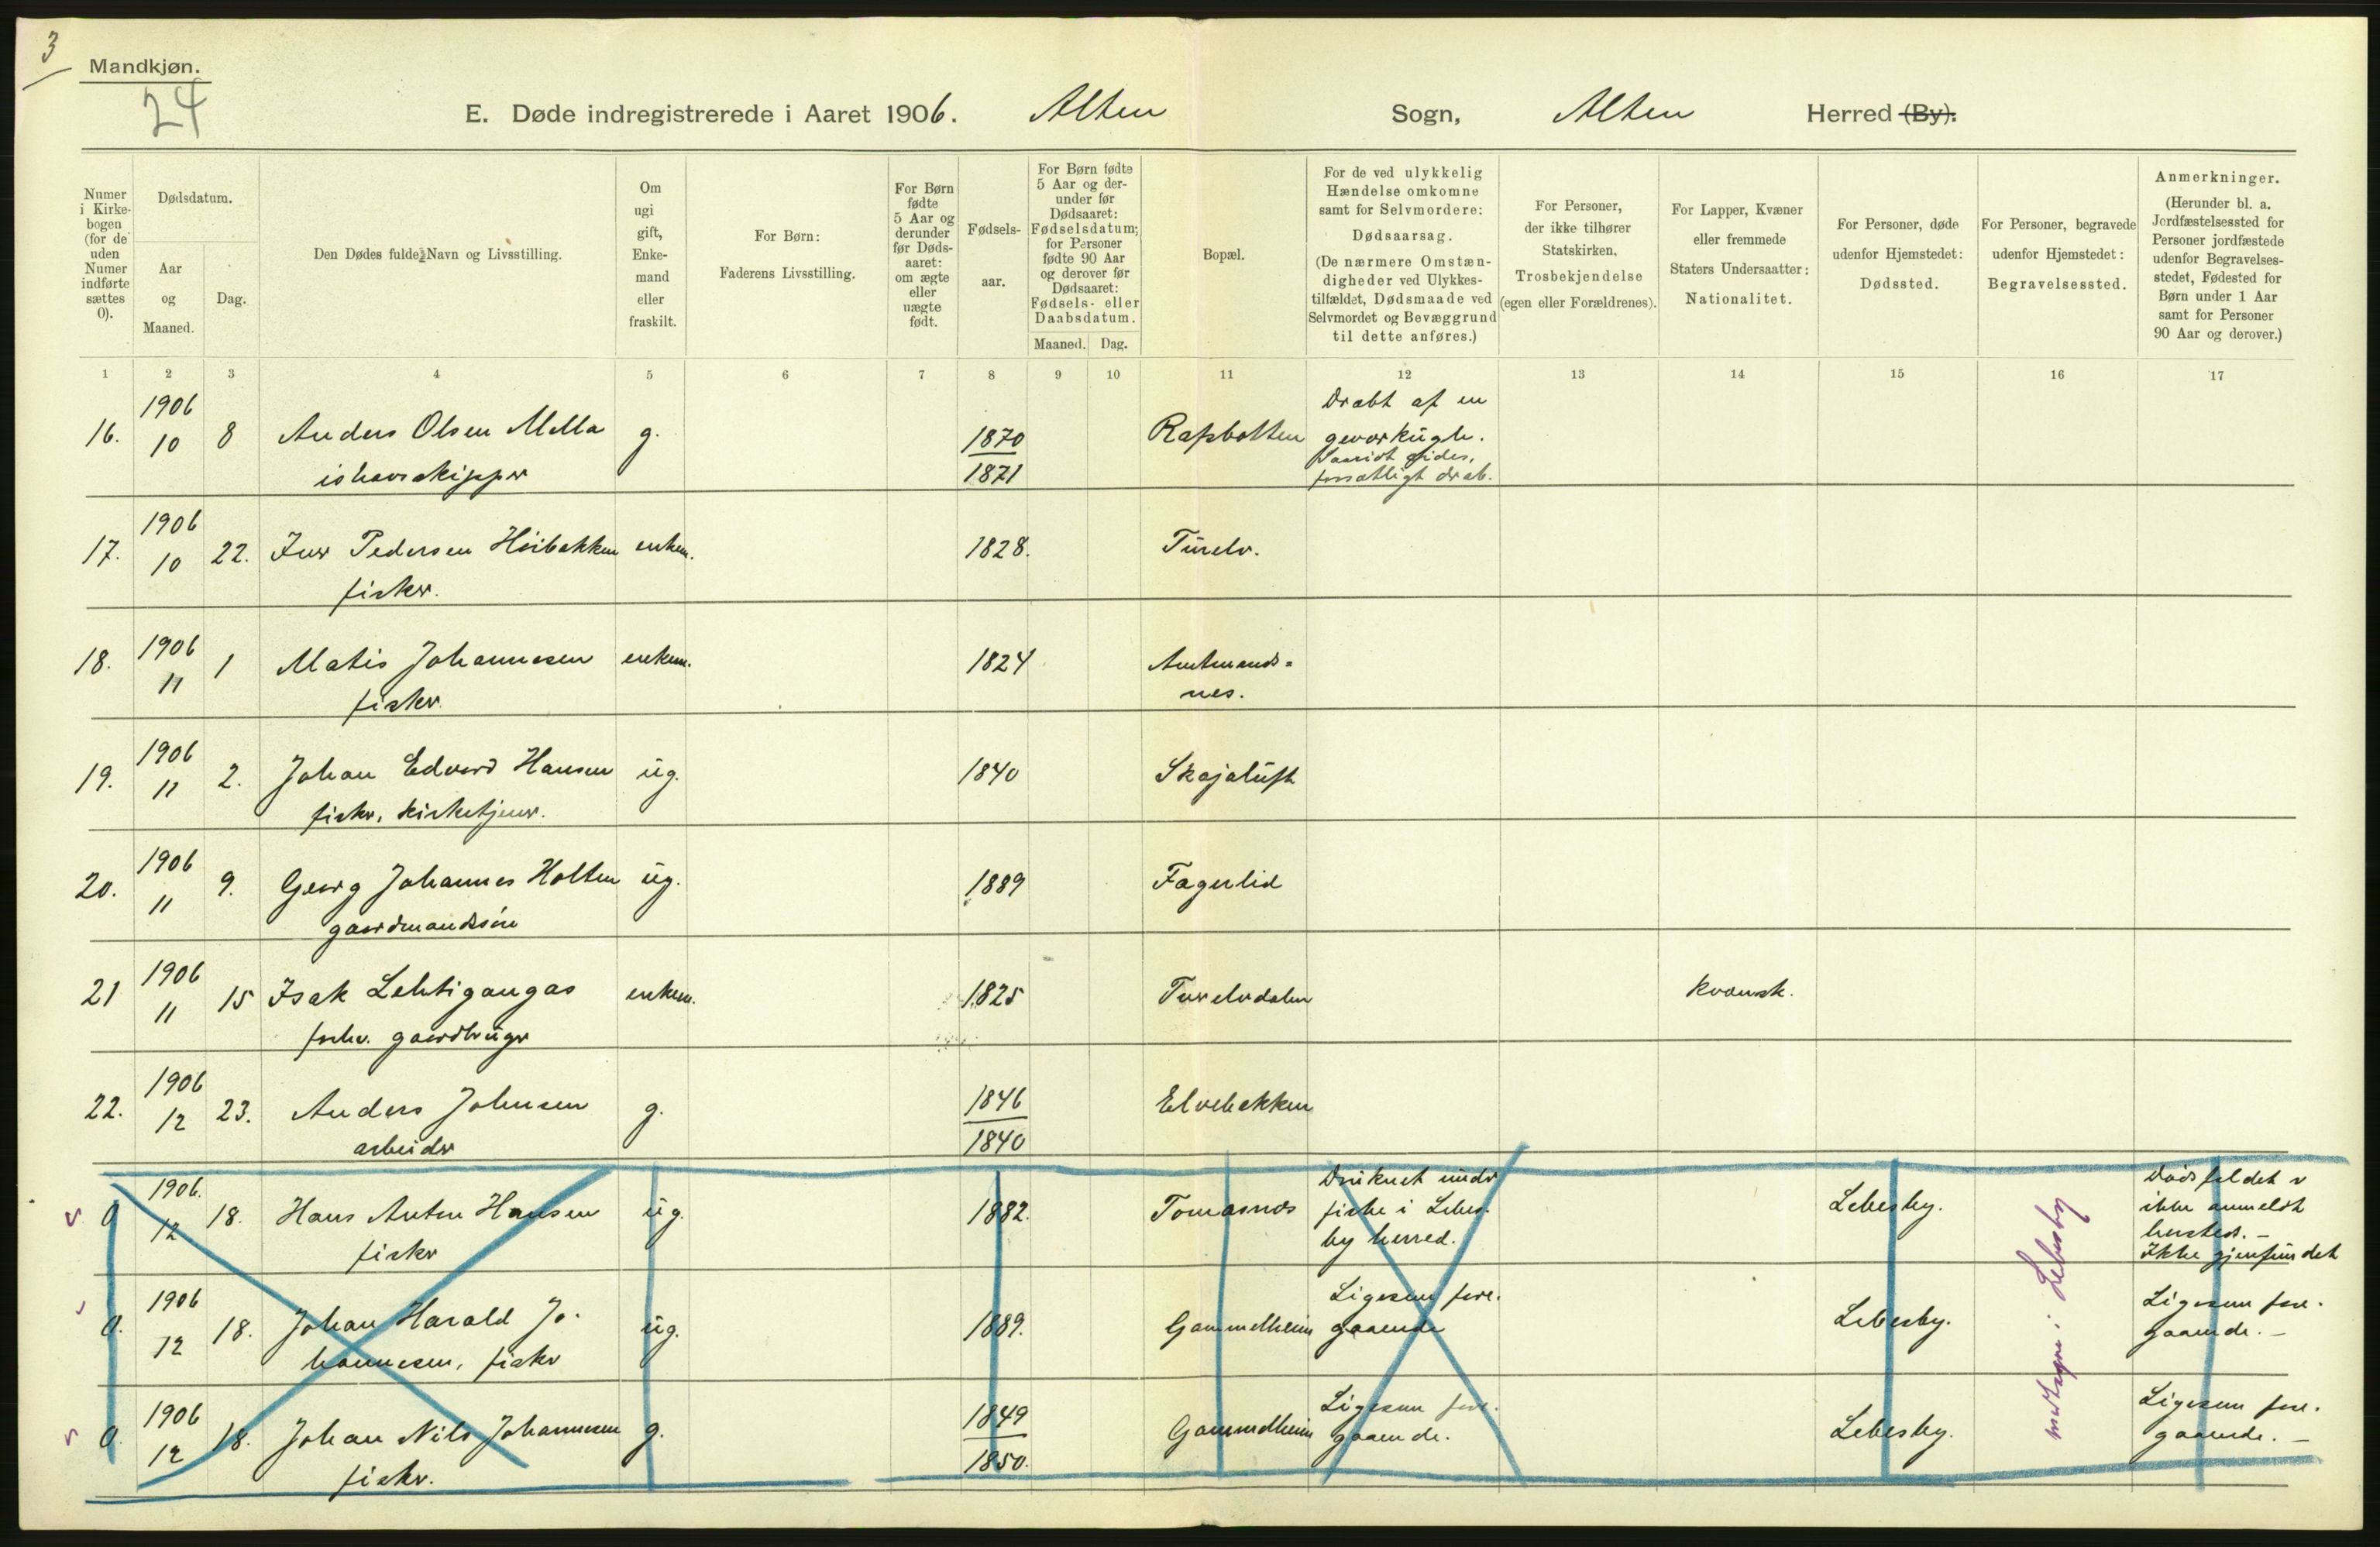 3
Mandkjøn.
24
E. Døde indregistrerede i Aaret 1906. Alten Sogn, Alten Herred (By).
Numer i Kirkebogen (for de uden Numer indførte sættes 0).
Dødsdatum.
Aar og Maaned.
Dag.
Den Dødes fulde Navn og Livsstilling.
Om ugi gift, Enkemand eller fraskilt.
For Børn: Faderens Livsstilling.
For Børn fødte 5 Aar og derunder før Dødsaaret: om ægte eller uægte født.
Fødselsaar.
For Børn fødte 5 Aar og derunder før Dødsaaret: Fødselsdatum; for Personer fødte 90 Aar og derover før Dødsaaret: Fødsels- eller Daabsdatum.
Maaned. Dag.
Bopæl.
For de ved ulykkelig Hændelse omkomne samt for Selvmordere: Dødsaarsag. (De nærmere Omstændigheder ved Ulykkestilfældet, Dødsmaade ved Selvmordet og Bevæggrund til dette anføres.)
For Personer, der ikke tilhører Statskirken, Trosbekjendelse (egen eller Forældrenes).
For Lapper, Kvæner eller fremmede Staters Undersaatter: Nationalitet.
For Personer, døde udenfor Hjemstedet: Dødssted.
For Personer, begravede udenfor Hjemstedet: Begravelsessted.
Anmerkninger. (Herunder bl. a. Jordfæstelsessted for Personer jordfæstede udenfor Begravelsesstedet, Fødested for Børn under 1 Aar samt for Personer 90 Aar og derover.)
1 2 3 4 5 6 7 8 9 10 11 12 13 14 15 16 17
1906 Dræbt af en
16. 10 8 Anders Olsen Mella g. 1870 Rafsbotten geværkugle.
ishavsskipper 1871 forsætligt drab.
1906
17. 10 22. Iver Pedersen Høibakken enkem. 1828. Turelv.
fisker.
1906
18. 11 1 Matis Johannesen enkem. 1824 Amtmands=
fisker. nes.
1906
19. 11 2. Johan Edvard Hansen ug. 1840 Skajaluft
fisker, kirketjener.
1906
20. 11 9. Georg Johannes Holten ug. 1889 Fagerlid
gaardmandssøn
1906
21 11 15 Isak Lehtigangas enkem. 1825 Turelvdalen kvænsk.
forhv. gaardbruger
1906
22. 12 23. Anders Johnsen g. 1846 Elvebakken
arbeider 1840
1906. Druknet under Dødsfaldet er
0 12 18. Hans Anton Hansen ug. 1882. Tomasnes fiske i Lebes- Lebesby. ikke anmeldt
fisker by herred. hersteds. –
Ikke gjenfundet
1906 Ligesom fore- Ligesom fore-
0. 12 18. Johan Harald Jo- ug. 1889. Gammelheim gaaende Lebesby. gaaende. –
hannesen, fisker
1906 1849 Ligesom fore- Ligesom fore-
0. 12 18. Johan Nils Johannesen g. Gammelheim gaaende. Lebesby. gaaende. –
fisker. 1850.
i Lebesby